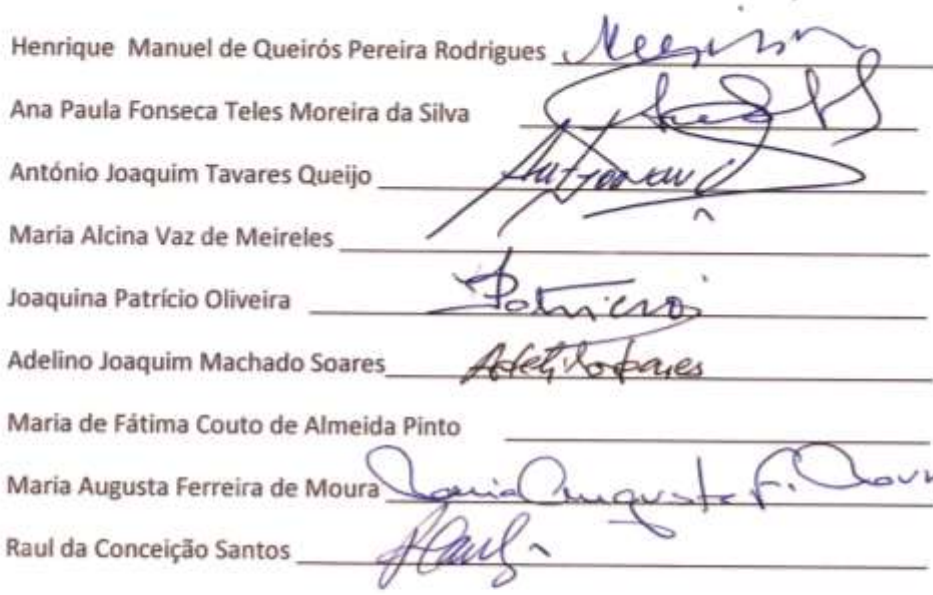 Henrique Manuel de Queirós Pereira Rodrigues
Ana Paula Fonseca Teles Moreira da Silva
António Joaquim Tavares Queijo
Maria Alcina Vaz de Meireles
Joaquina Patrício Oliveira Patrício
Adelino Joaquim Machado Soares
Maria de Fátima Couto de Almeida Pinto
Maria Augusta Ferreira de Moura Maria Augusta F. Mour
Raul da Conceição Santos Raul